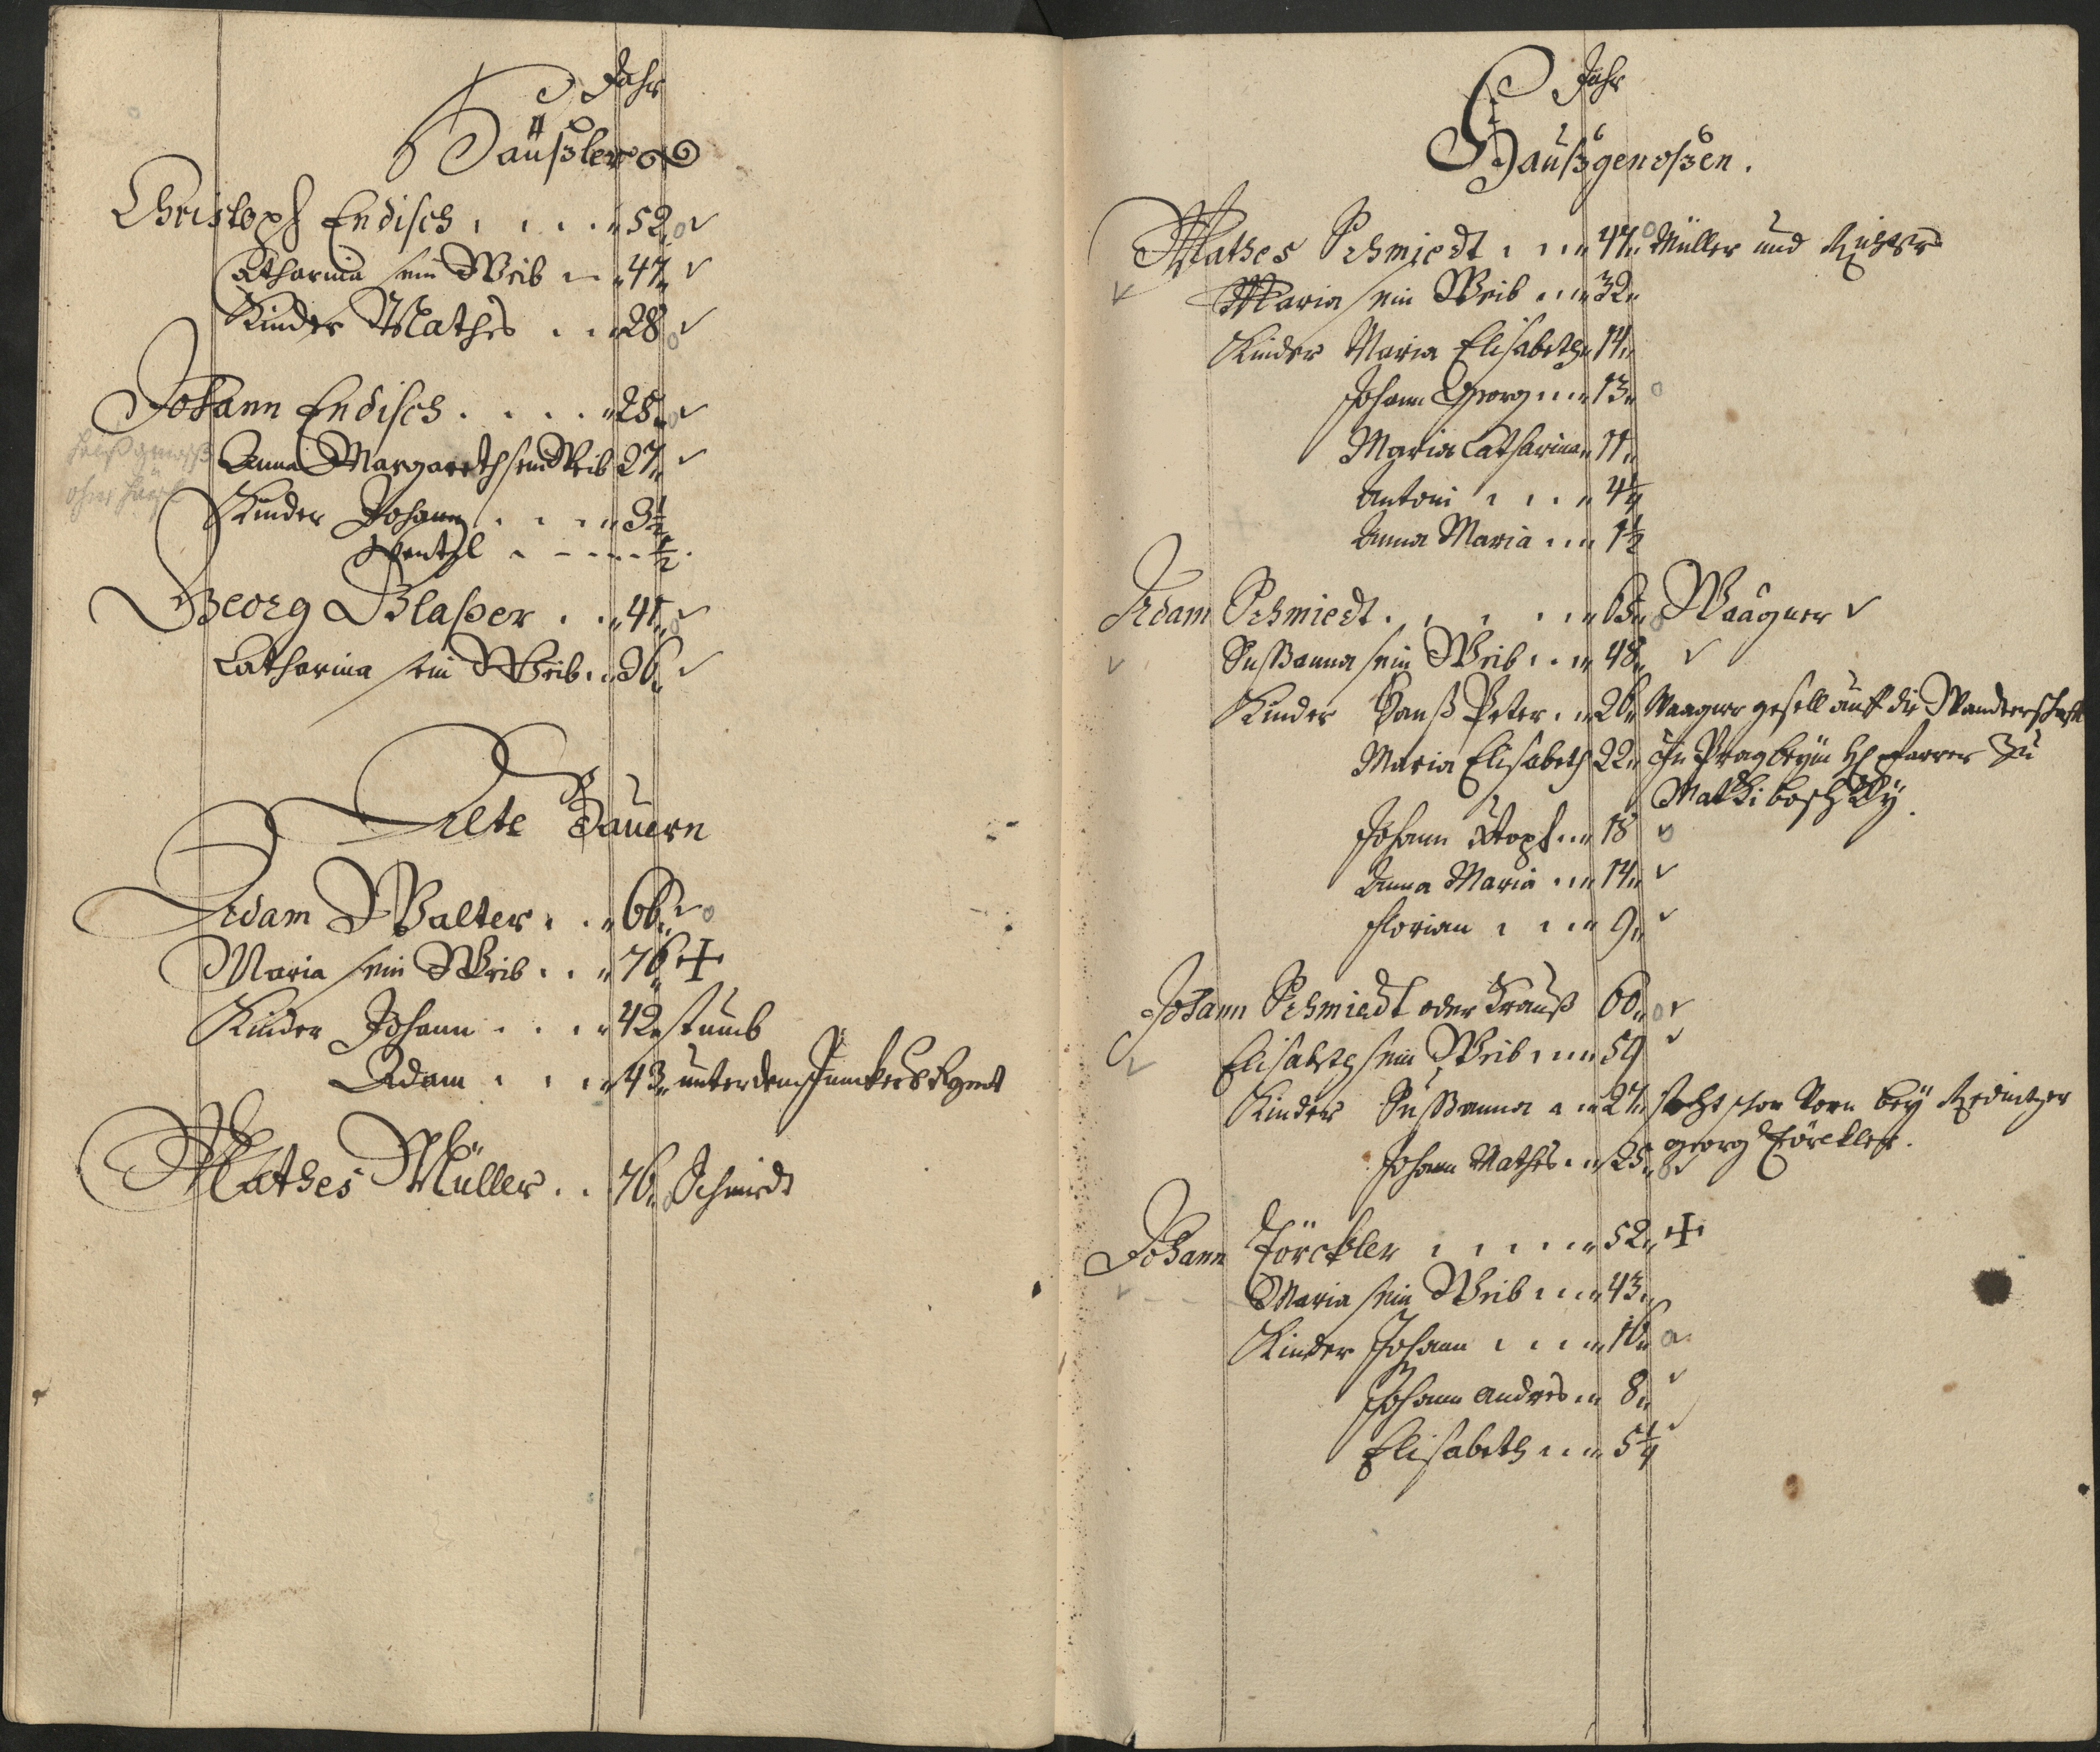 Jahr
Häußler
Christoph Endisch . . . . " 52 " o ✓
Catharina sein Weib . . " 47 " ✓
Kinder Mathes . . " 28 o ✓
Johann Endisch . . . . " 28 " o ✓
Anna Margareth sein Weib 27 " ✓
Kinder Johann . . . " 3½
Wentzl . . . . . ½
Georg Glaßer . . " 41 " o ✓
Catharina sein Weib . . 36 " ✓
Alte Bauern
Adam Walter . . " 66 " ✓ o
Maria sein Weib . . " 76 " +
Kinder Johann . . . " 42 " stumb
Adam . . . " 43 " unter dem Regmt
Mathes Müller . . 76 " Schmidt
Jahr
Haußgenoßen.
Mathes Schmiedt . . . " 47 " o Müller und
✓ Maria sein Weib . . . " 32 "
Kinder Maria Elisabeth " 14 "
Johann Georg . . . " 13 " o
Maria Catharina " 11 "
Antoni . . . . " 4¼
Anna Maria . . . " 1½
Adam Schmiedt . . . . . " 65 " o Waagner ✓
✓ Sussanna sein Weib . . . " 48 " ✓
Kinder Hanß Peter . " 26 " Waagner gesell auff die Wanderschafft
Maria Elisabeth 22 " In Prag beym H Pfarrer zu
Johann Stoph . . " 18 ✓ o
Anna Maria . . " 14 " ✓
Florian . . . . " 9 " ✓
Johann Schmiedt oder Krauß 60 " o ✓
✓ Elisabeth sein Weib . . . " 59 ✓
Kinder Sussanna . . " 27 " bey
Johann Mathes . . " 25 " o ✓ Georg Törckler.
Johann Törckler . . . . . " 52 " +
✓ Maria sein Weib . . . " 43 "
Kinder Johann . . . . " 16 " o
Johann Andres . . " 8 " ✓
Elisabeth . . . " 5¼ ✓